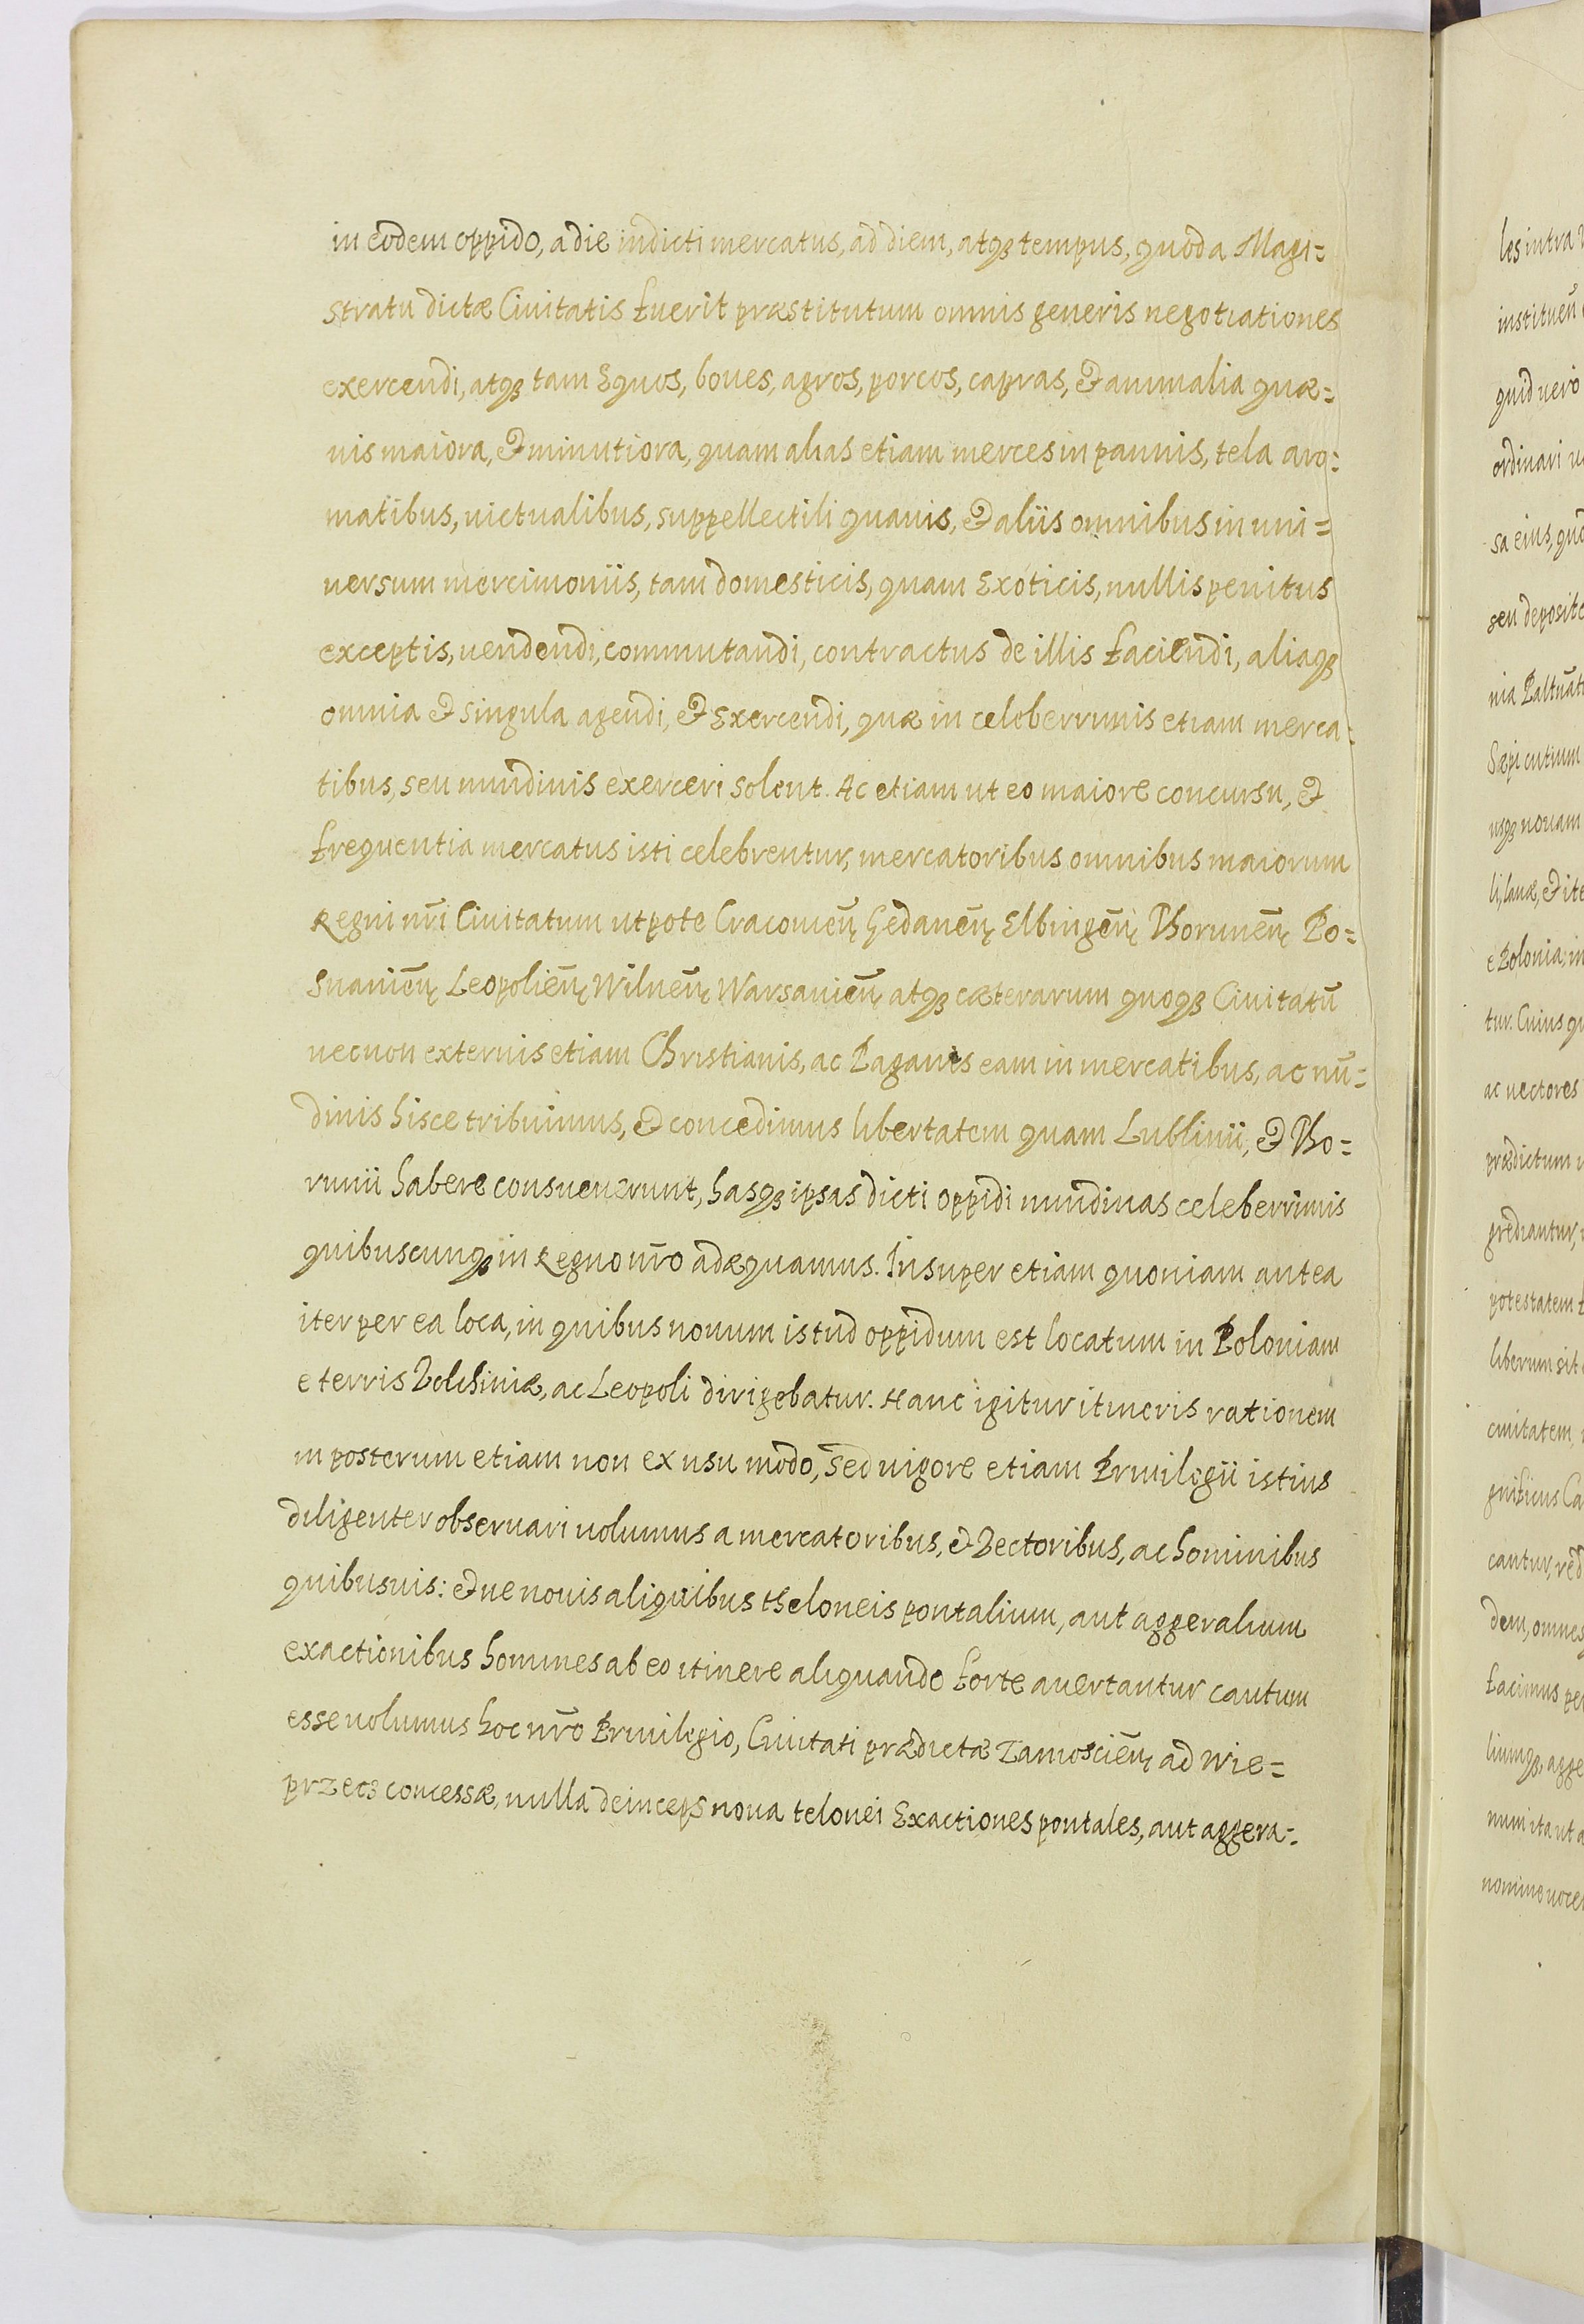 in eodem oppido, a die indicti mercatus, ad diem, atqꝫ tempus, quod a Magi=
stratu dictæ Ciuitatis fuerit præstitutum omnis generis negotiationes
exercendi, atqꝫ tam Equos, boues, agros, porcos, capras, & animalia quæ=
uis maiora, & minutiora, quam alias etiam merces in pannis, tela aro=
matibus, uictualibus, suppellectili quauis, & aliis omnibus in uni=
uersum mercimoniis, tam domesticis, quam Exoticis, nullis penitus
exceptis, uendendi, commutandi, contractus de illis faciendi, aliaqꝫ
omnia & singula agendi, & Exercendi, quæ in celeberrimis etiam merca=
tibus, seu nundinis exerceri solent. Ac etiam ut eo maiore concursu, &
frequentia mercatus isti celebrentur, mercatoribus omnibus maiorum
Regni nr̃i Ciuitatum utpote Cracouieñ Gedaneñ Elbingeñ Thoruneñ Po=
snanieñ Leopolieñ Wilneñ Warsauieñ atqꝫ cæterarum quoqꝫ Ciuitatũ
necnon externis etiam Christianis, ac Paganis eam in mercatibus, ac nũ=
dinis hisce tribuimus, & concedimus libertatem quam Lublinii, & Tho=
runii habere consueuerunt, hasqꝫ ipsas dicti oppidi nundinas celeberrimis
quibuscunqꝫ in Regno nr̃o adæquamus. Insuper etiam quoniam antea
iter per ea loca, in quibus nouum istud oppidum est locatum in Poloniam
e terris Volhiniæ, ac Leopoli dirigebatur. Hanc igitur itineris rationem
in posterum etiam non ex usu modo, sed uigore etiam Priuilegii istius
diligenter obseruari uolumus a mercatoribus, & Vectoribus, ac hominibus
quibusuis: & ne nouis aliquibus theloneis pontalium, aut aggeralium
exactionibus homines ab eo itinere aliquando forte auertantur cautum
esse uolumus hoc nr̃o Priuilegio, Ciuitati prædictæ Zamoscieñ ad Wie=
przecz concessæ, nulla deinceps noua telonei Exactiones pontales, aut aggera=
les intra
instituẽn
quid uero
ordinari
sa eius,
seu deposit
nia
usqꝫ nouam
li, lanæ, & ite
e Polonia, in
tur. Cuius
ac uectores
prædictum
grediantur,
potestatem
liberum sit
ciuitatem,
gnificus Ca
cantur,
dem, omnes
facimus
numita ut a
nomine